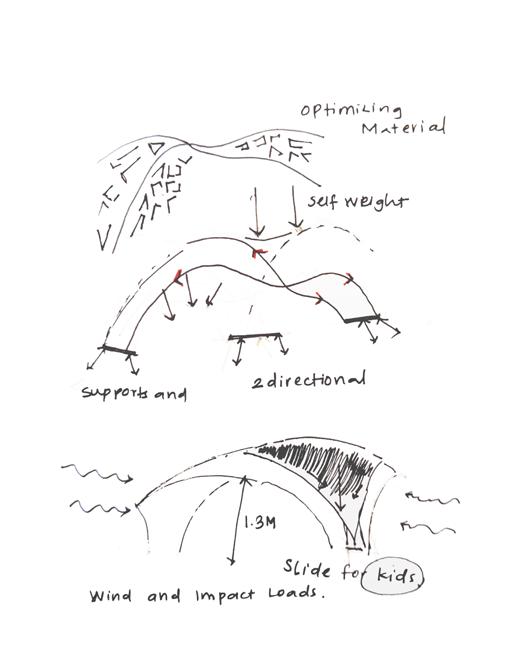 Optimizing
Material
self weight
supports and
2 directional
1.3M
Slide for kids
Wind and Impact Loads.